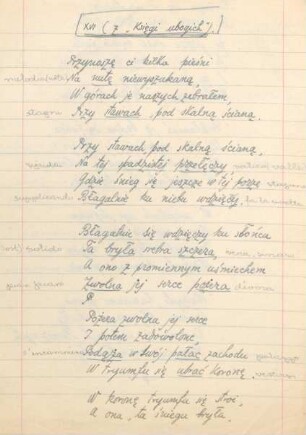 XVI (z „Księgi ubogich”.)
Przynoszę ci kilka pieśni
Na nutę niewyszukaną,
W górach je naszych zebrałem,
Przy stawach pod skalną ścianą.
Przy stawach pod skalną ścianą,
Na tej spadzistej przełęczy
Gdzie śnieg się jeszcze w tej porze
Błagalnie ku niebu wdzięczy.
Błagalnie się wdzięczy ku słońcu
Ta bryła srebra szczera,
A ono z promiennym uśmiechem
Zwolna jej serce pożera
Pożera zwolna jej serce
I potem zadowolone,
Podąża w swój pałac zachodu
W tryumfu się ubrać koronę.
W koronę tryumfu się stroi,
A ona, ta śniegu bryła,